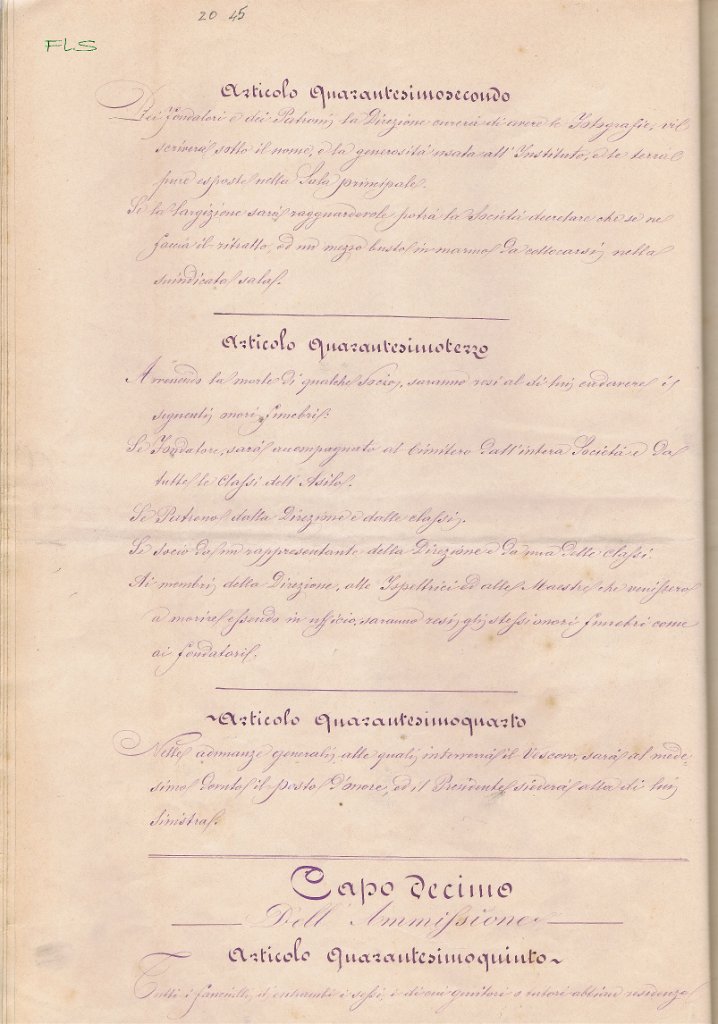 20 45
FLS
Articolo Quarantesimosecondo
Dei fondatori e dei Patroni, la Direzione curerà di avere le Fotografie, vi
scriverà sotto il nome, e la generosità usata all'Instituto, e le terrà
pure esposte nella Sala principale.
Se la largizione sarà ragguardevole potrà la Società decretare che se ne
faccia il ritratto, od un mezzo busto in marmo da collocarsi nella
suindicata sala.
Articolo Quarantesimoterzo
Avvenendo la morte di qualche Socio, saranno resi al di lui cadavere i
seguenti onori funebri:
Se Fondatore, sarà accompagnato al Cimitero dall'intera Società e da
tutte le Classi dell'Asilo.
Se Patrono dalla Direzione e dalle classi.
Se socio da un rappresentante della Direzione e da una delle classi
Ai membri della Direzione, alle Ispettrici ed alle Maestre che venissero
a morire essendo in ufficio, saranno resi gli stessi onori funebri come
ai fondatori.
Articolo Quarantesimoquarto
Nelle adunanze generali, alle quali interverrà il Vescovo, sarà al mede-
simo dovuto il posto d'onore, ed il Presidente siederà alla di lui
sinistra.
Capo Decimo
Dell'Ammissione
Articolo Quarantesimoquinto
Tutti i fanciulli, d'entrambi i sessi, i di cui genitori o tutori abbian residenza